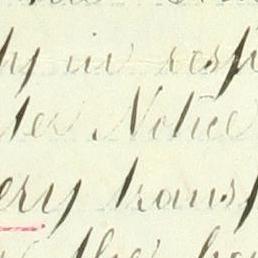 hy in resp
ter Notice
ery transp
the